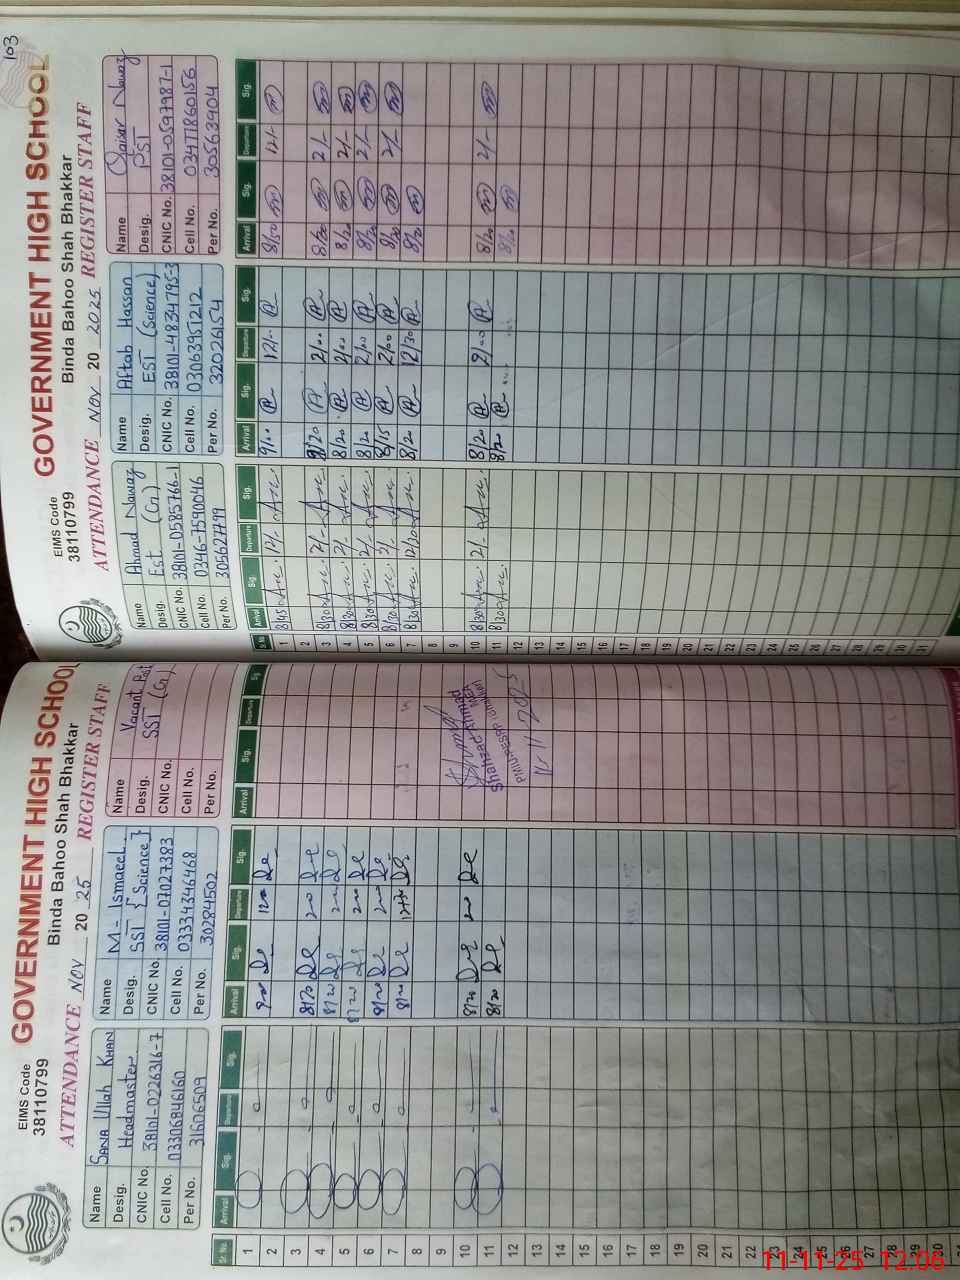 EIMS Code
38110799
GOVERNMENT HIGH SCHOOL
Binda Bahoo Shah Bhakkar
ATTENDANCE NOV 20 25 REGISTER STAFF
Name SANA Ullah KHAN
Desig. Headmaster
CNIC No. 38101-0226316-7
Cell No. 03306846160
Per No. 31606509
Name M- Ismaeel
Desig. SST {Science}
CNIC No. 38101-07027383
Cell No. 03334346468
Per No. 30284502
Name Vacant Post
Desig. SST (G)
CNIC No.
Cell No.
Per No.
Sr. No. Arrival Sig. Departure Sig. Arrival Sig. Departure Sig. Arrival Sig. Departure Sig.
1 9/00 12/00
2
3 8/20 2/00
4 8/20 2/00
5 8/20 2/00
6 8/20 2/00
7 8/20
8
9
10 8/20 2/00
11 8/20
12
13
14
15
16
17
18
19
20
21
22
23
24
25
26
27
28
29
30
31
Shahzad Ahmad
MEA
11 2025
103
EIMS Code
38110799
GOVERNMENT HIGH SCHOOL
Binda Bahoo Shah Bhakkar
ATTENDANCE NOV 20 2025 REGISTER STAFF
Name Ahmad Nawaz
Desig. Est (G)
CNIC No. 38101-0585766-1
Cell No. 0346-7590046
Per No. 30562799
Name Aftab Hassan
Desig. EST (Science)
CNIC No. 38101-48347953
Cell No. 03063951212
Per No. 32026154
Name Qaisar Nawaz
Desig. PST
CNIC No. 38101-0597987-1
Cell No. 03477860156
Per No. 30563904
Sr. No Arrival Sig. Departure Sig. Arrival Sig. Departure Sig. Arrival Sig. Departure Sig.
1 8/45 12/- 9/00 12/- 8/50 12/-
2
3 8/30 2/- 8/20 2/00 8/20 2/-
4 8/30 2/- 8/20 2/00 8/20 2/-
5 8/30 2/- 8/20 2/00 8/20 2/-
6 8/30 2/- 8/15 2/00 8/20 2/-
7 8/30 12/30 8/20 12/30 8/20
8
9
10 8/30 2/- 8/20 2/00 8/20 2/-
11 8/30 8/20 8/20
12
13
14
15
16
17
18
19
20
21
22
23
24
25
26
27
28
29
30
31
11-11-25 12:06